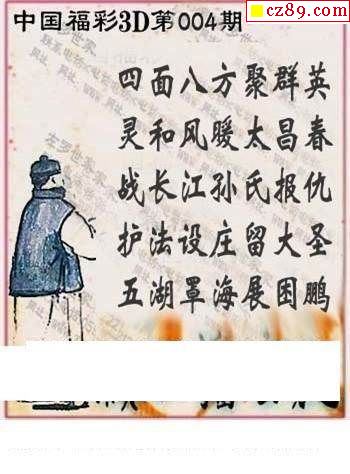 cz89.com
中国福彩3D第004期
四面八方聚群英
灵和风暖太昌春
战长江孙氏报仇
护法设庄留大圣
五湖罩海展困鹏